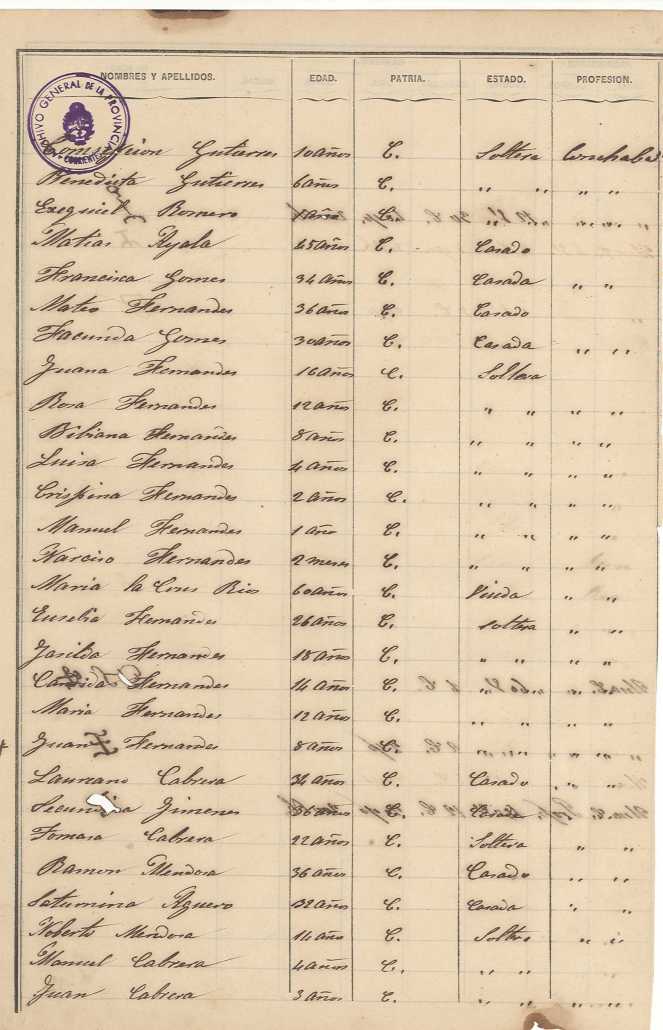 NOMBRES Y APELLIDOS. EDAD. PATRIA. ESTADO. PROFESION.
ARCHIVO GENERAL DE LA PROVINCIA CORRIENTES
Gutierres 10 años C. Soltera Conchaba
Benedicta Gutierres 6 años C. " " " "
Exequiel Romero años C.
Matias Ayala 45 años C. Casado
Francisca Gomes 34 años C. Casada " "
Mateo Fernandes 36 años C. Casado
Facunda Gomes 30 años C. Casada " "
Juana Fernandes 16 años C. Soltera
Rosa Fernandes 12 años C. " " " "
Bibiana Fernandes 8 años C. " " " "
Luisa Fernandes 4 años C. " " " "
Crispina Fernandes 2 años C. " " " "
Manuel Fernandes 1 año C. " " " "
Narciso Fernandes 2 meses C. " " " "
Maria la Crus Rios 60 años C. Viuda " "
Eusebia Fernandes 26 años C. Soltera " "
Fernandes 18 años C. " " " "
Fernandes 14 años C. " "
Maria Fernandes 12 años C. " " " "
Juan Fernandes 8 años C. " " " "
Laureano Cabrera 34 años C. Casado " "
Jimenes 36 años C. Casada
Tomasa Cabrera 22 años C. Soltera " "
Ramon Mendosa 36 años C. Casado " "
Saturnina Aguero 32 años C. Casada " "
Roberto Mendosa 14 años C. Soltero " "
Manuel Cabrera 4 años C. " " " "
Juan Cabrera 3 años C. " " " "